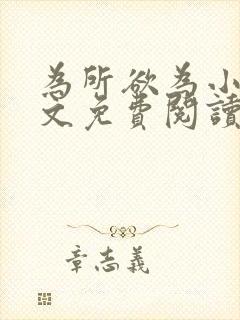 為所欲為小
文免費閱讀
章志義